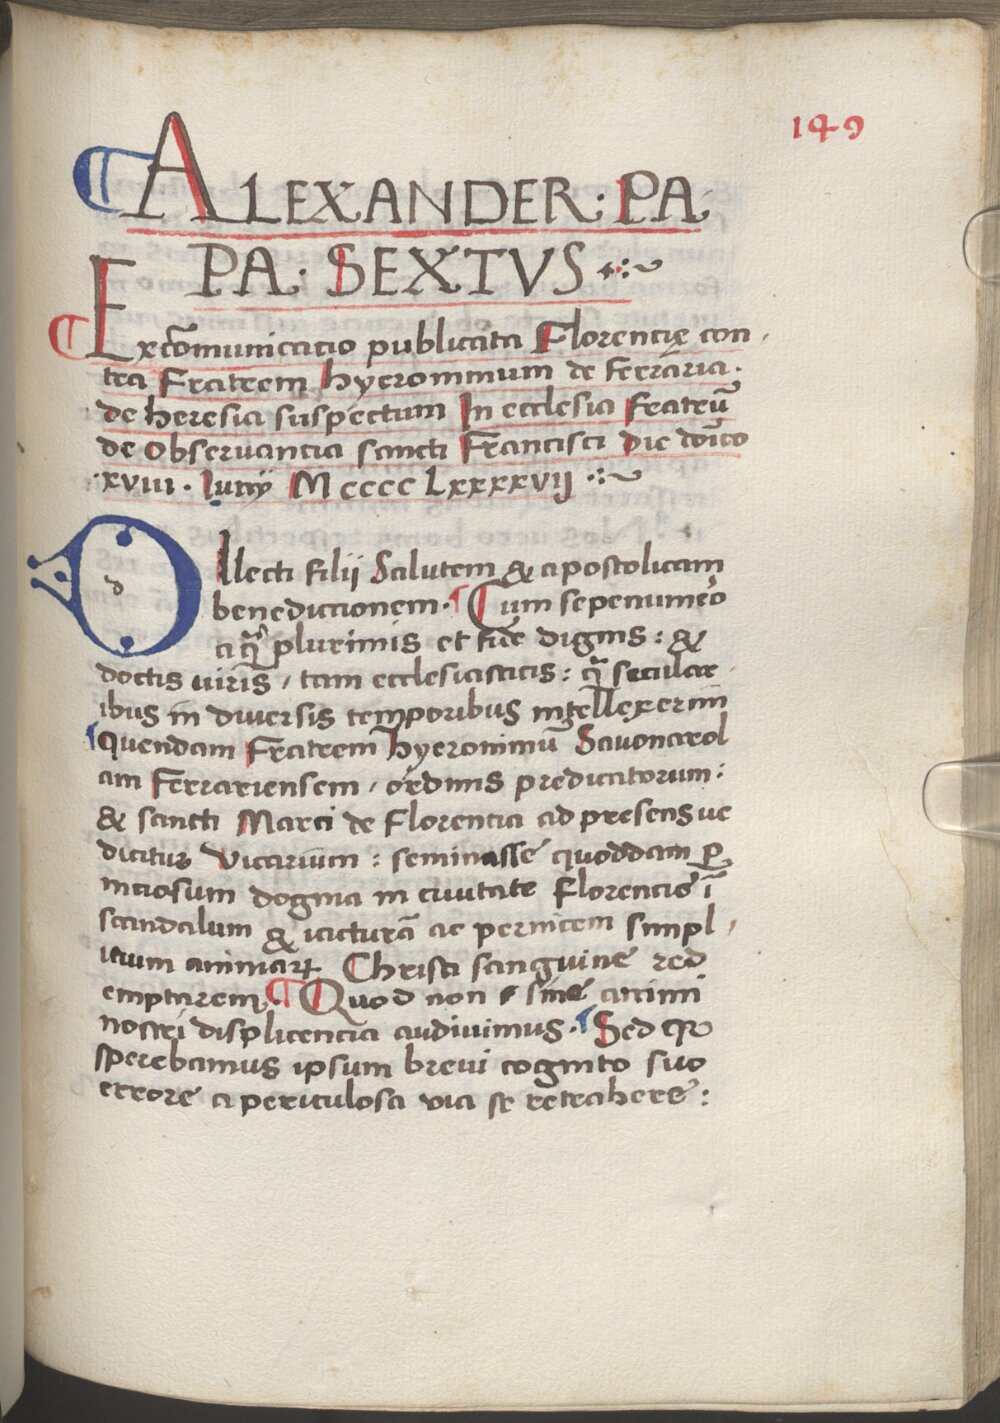 149
ALEXANDER: PA
PA: SEXTVS
Excõmunicatio publicata Florentię con
tra Fratrem hyeronimum de ferraria.
de heresia suspectum In ecclesia fratrũ
de obseruantia sancti Francisci die dõico
.xviii. Iunÿ Mcccc Lxxxxvij
DIlecti filij Salutem & apostolicam
benedictionem. Cum sepenumero
a plurimis et fide dignis: &
doctis uiris, tam ecclesiasticis: secular
ibus in diuersis temporibus intellexerim
quendam Fratrem hyeronimũ Sauonarol
am Ferrariensem, ordinis predicatorum:
& sancti Marci de Florentia ad presens ue
dicitur Vicarium: seminasse quoddam ꝑ
nitiosum dogma in ciuitate Florentie ĩ
scandalum & iacturã ac pernitiem simpl
itium animarꝝ Christi sanguine red
emptarem. Quod non sine animi
nostri displicentia audiuimus. Sed
sperebamus ipsum breui cognito suo
errore a periculosa via se retrahere: